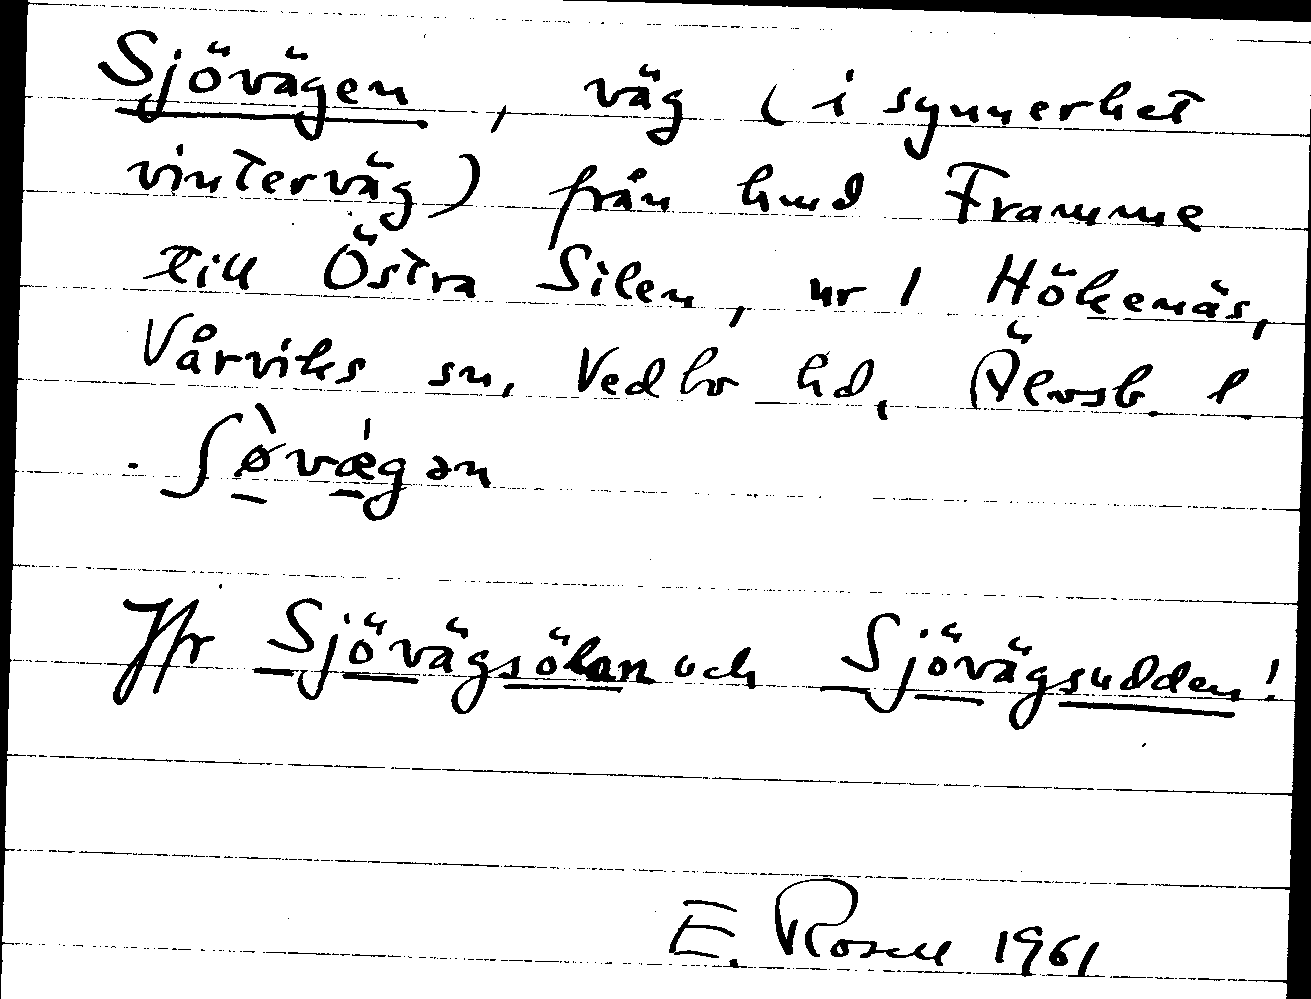 Sjövägen, väg (i synnerhet
vinterväg) från hmd Framme
till Östra Silen, nr 1 Hökenäs,
Vårviks sn, Vedbo hd, Älvsb. l.
. ʃø̀vǽgən
Jfr Sjövägsölan och Sjövägsudden!
E. Rosell 1961